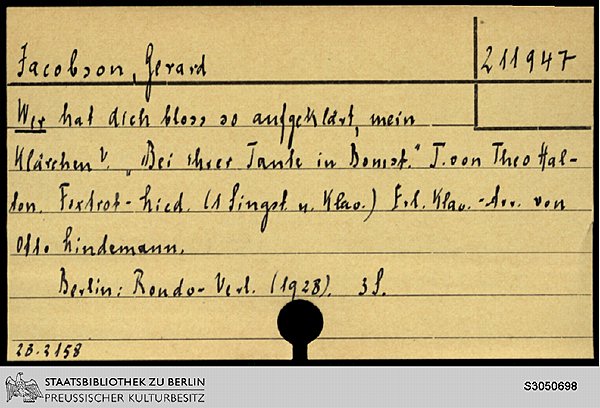 Jacobson, Gerard
211947
Wer hat dich bloss so aufgeklärt, mein
Klärchen?. „Bei ihrer Tante in Bomst." T. von Theo Hal-
ton. Foxtrot-Lied. (1 Singst. u. Klav.) Erl. Klav.-Arr. von
Otto Lindemann.
Berlin: Rondo-Verl. (1928). 3 S.
28.2158
STAATSBIBLIOTHEK ZU BERLIN
PREUSSISCHER KULTURBESITZ
S3050698